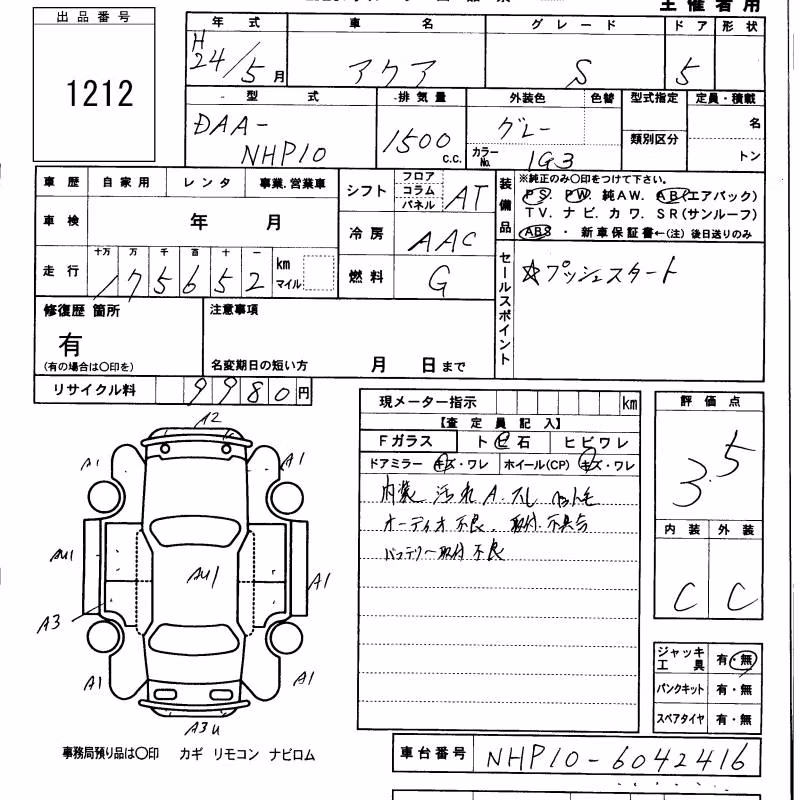 主催者用
出品番号
1212
年式 車名 グレード ドア 形状
H24/5月 アクア S 5
型式 排気量 外装色 色替 型式指定 定員・積載
DAA-NHP10 1500 c.c. グレー 類別区分 名
カラーNo. 1G3 トン
車歴 自家用 レンタ 事業.営業車
シフト フロア コラム パネル AT
装備品
※純正のみ○印をつけて下さい。
PS. PW. 純AW. AB(エアバック)
TV. ナビ. カワ. SR(サンルーフ)
ABS ・ 新車保証書←(注)後日送りのみ
車検 年 月
冷房 AAC
走行 十万 万 千 百 十 一
175652 km マイル
燃料 G
セールスポイント
☆プッシュスタート
修復歴 箇所
有
(有の場合は○印を)
注意事項
名変期日の短い方 月 日まで
リサイクル料 9980円
現メーター指示 km
【査定員記入】
Fガラス トビ石 ヒビワレ
ドアミラー キズ・ワレ ホイール(CP) キズ・ワレ
内装 汚れ A.
オーディオ不良、取付不具合
バッテリー取付不良
評価点
3.5
内装 外装
C C
ジャッキ工具 有・無
パンクキット 有・無
スペアタイヤ 有・無
A2
A1 A1
AU1 AU1 A1
A3
A1 A1
A3U
事務局預り品は○印 カギ リモコン ナビロム
車台番号 NHP10-6042416